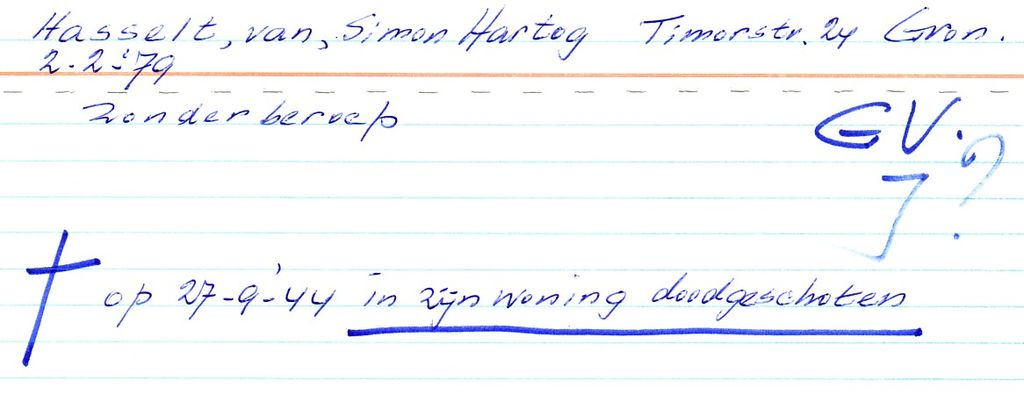 Hasselt, van, Simon Hartog Timorstr. 24 Gron.
2-2-'79
zonder beroep
GV.
J ?
† op 27-9-'44 in zijn woning doodgeschoten